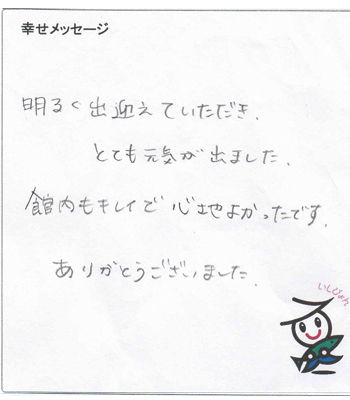 幸せメッセージ
明るく出迎えていただき、
とても元気が出ました。
館内もキレイで心地よかったです。
ありがとうございました。
いしぴょん